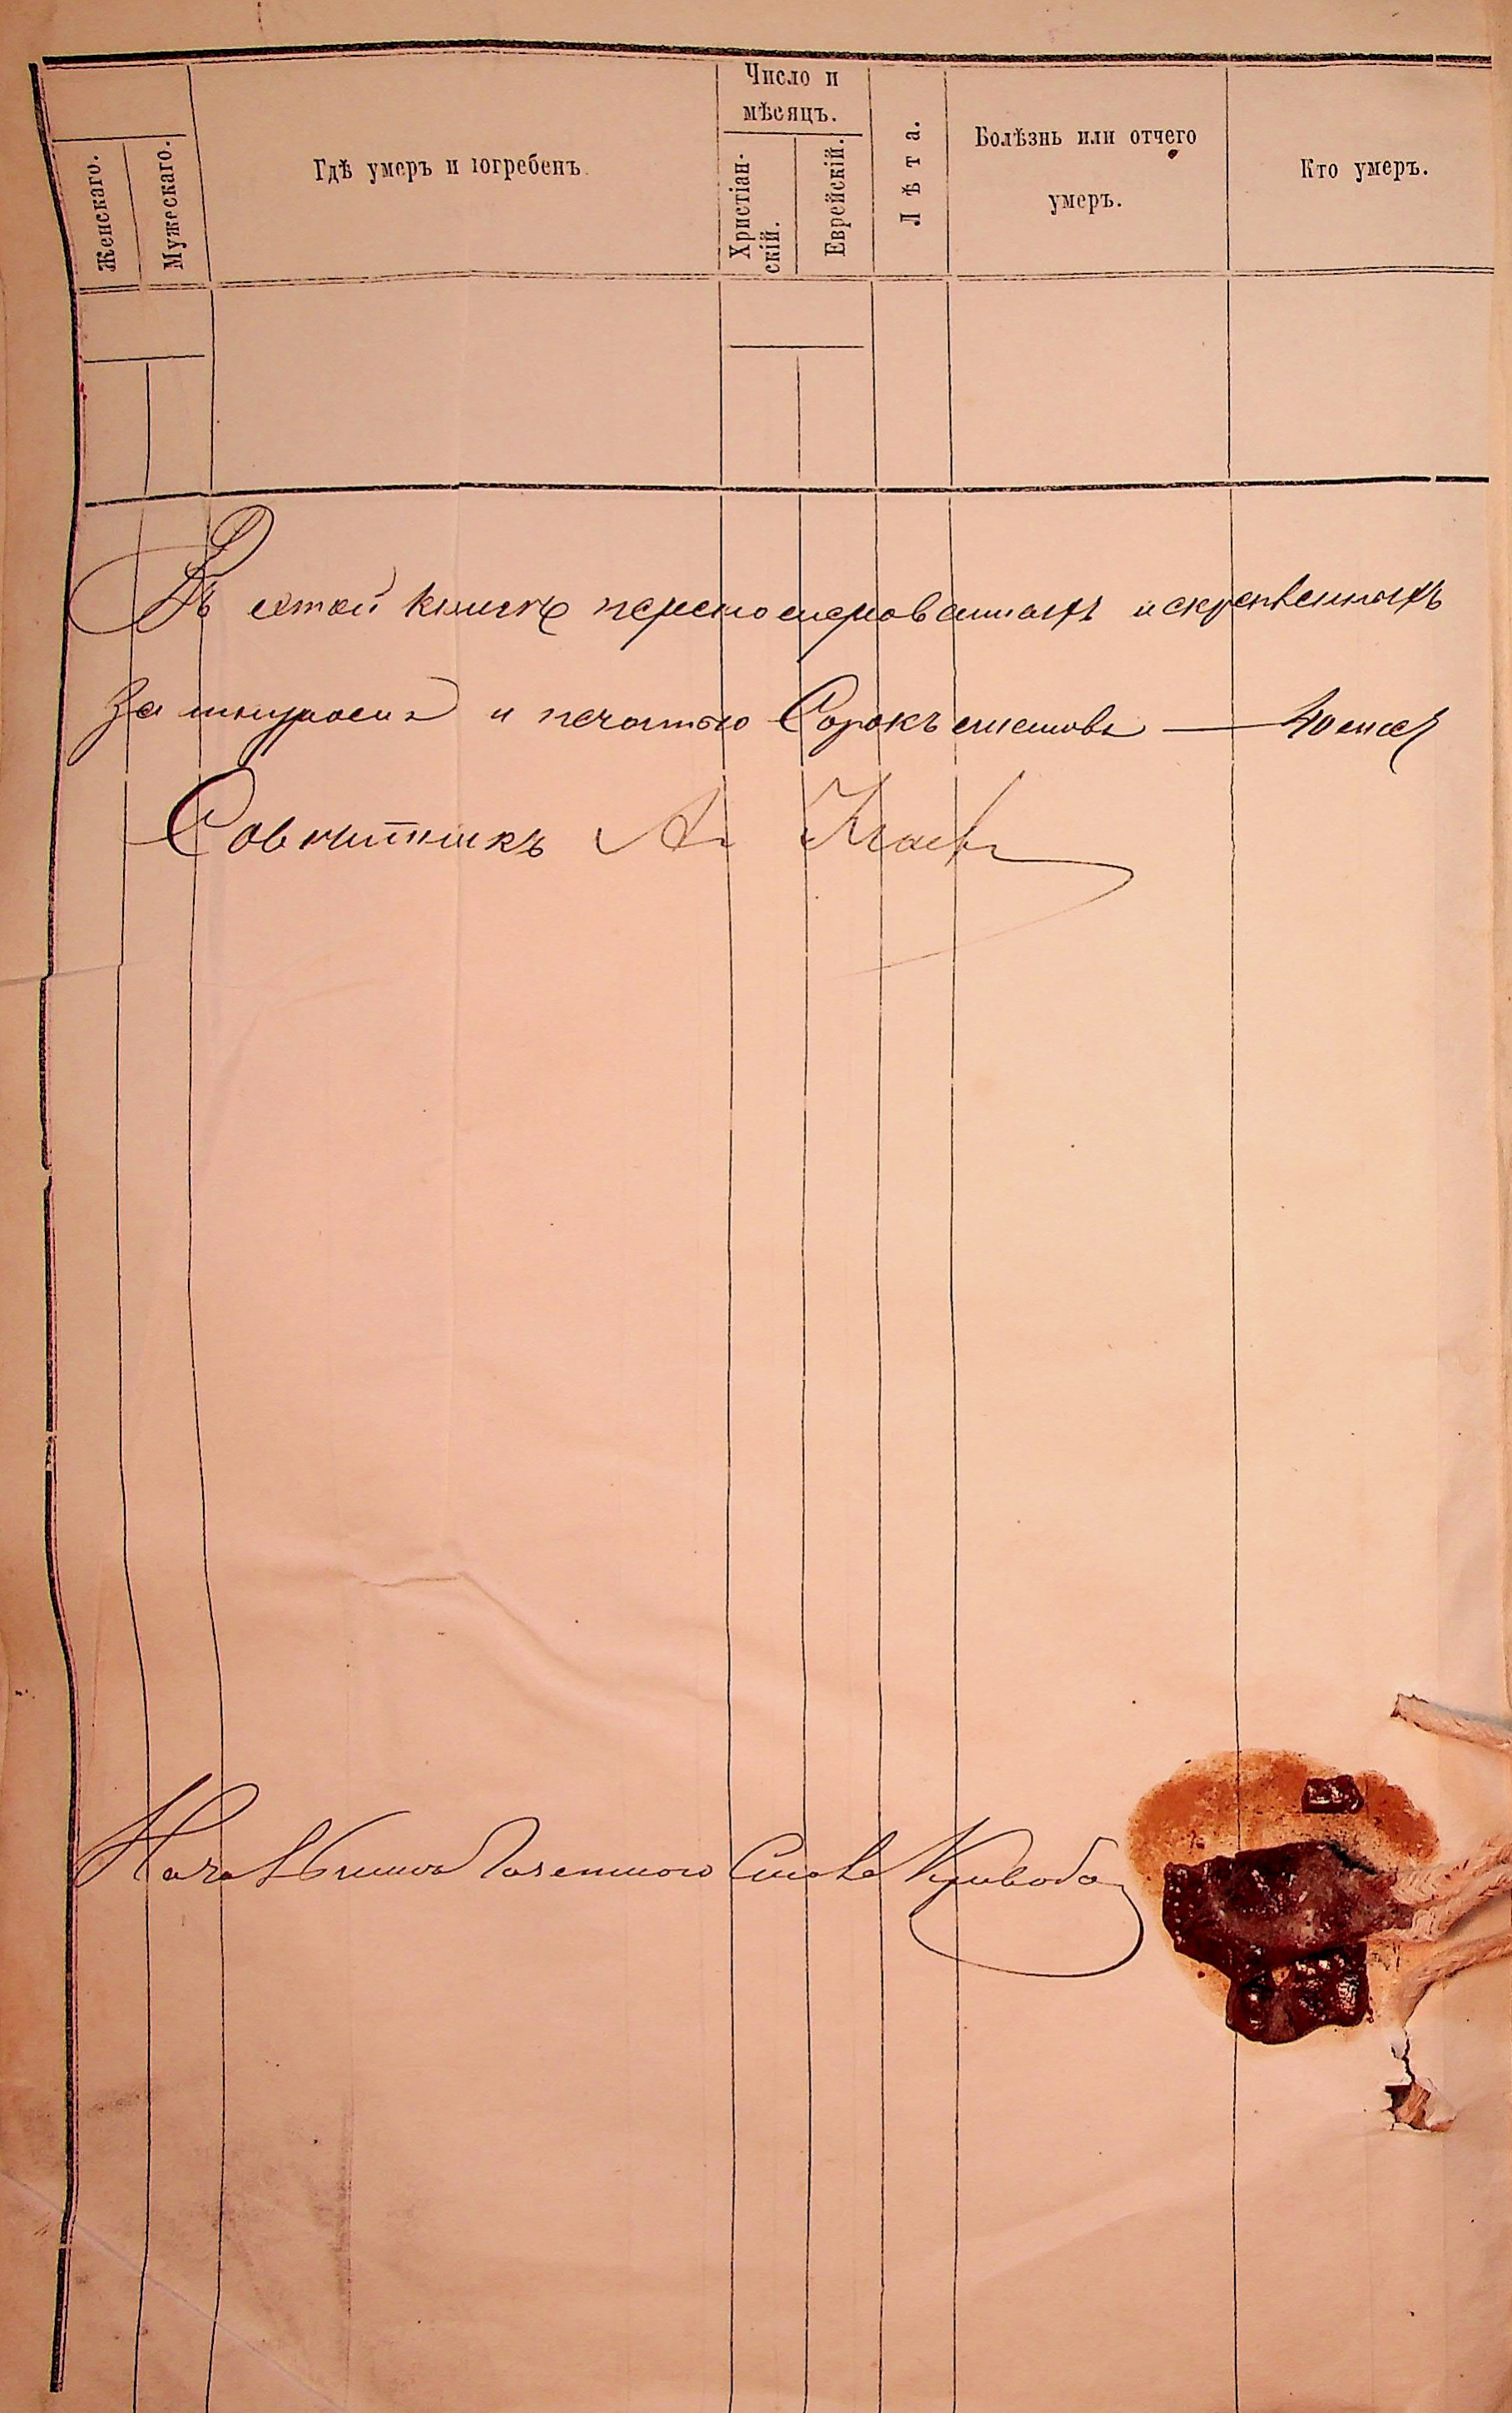 Женскаго.
Мужескаго.
Гдѣ умеръ и югребенъ
Число и
мѣсяцъ.
Христіан-
скій.
Еврейскій.
Лѣта.
Болѣзнь или отчего
умеръ.
Кто умеръ.
Въ этой книгѣ перенумерованныхъ и скрѣпленныхъ
за шнуромъ и печатью Сорокъ листовъ — 40 лис
Совѣтникъ А.